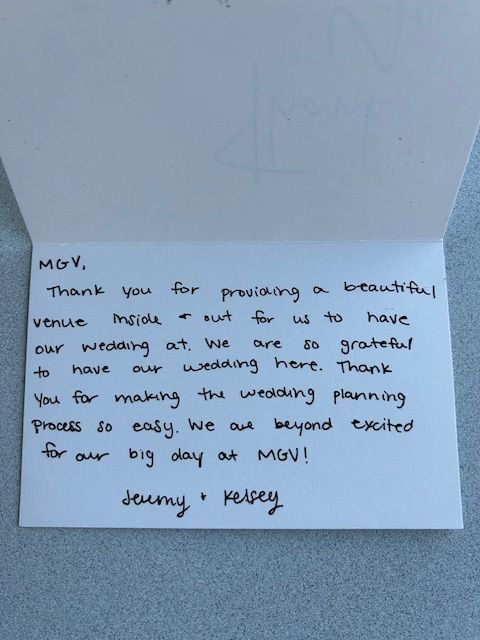 MGV,
Thank you for providing a beautiful
venue inside + out for us to have
our wedding at. We are so grateful
to have our wedding here. Thank
you for making the wedding planning
process so easy. We are beyond excited
for our big day at MGV!
Jeremy + Kelsey